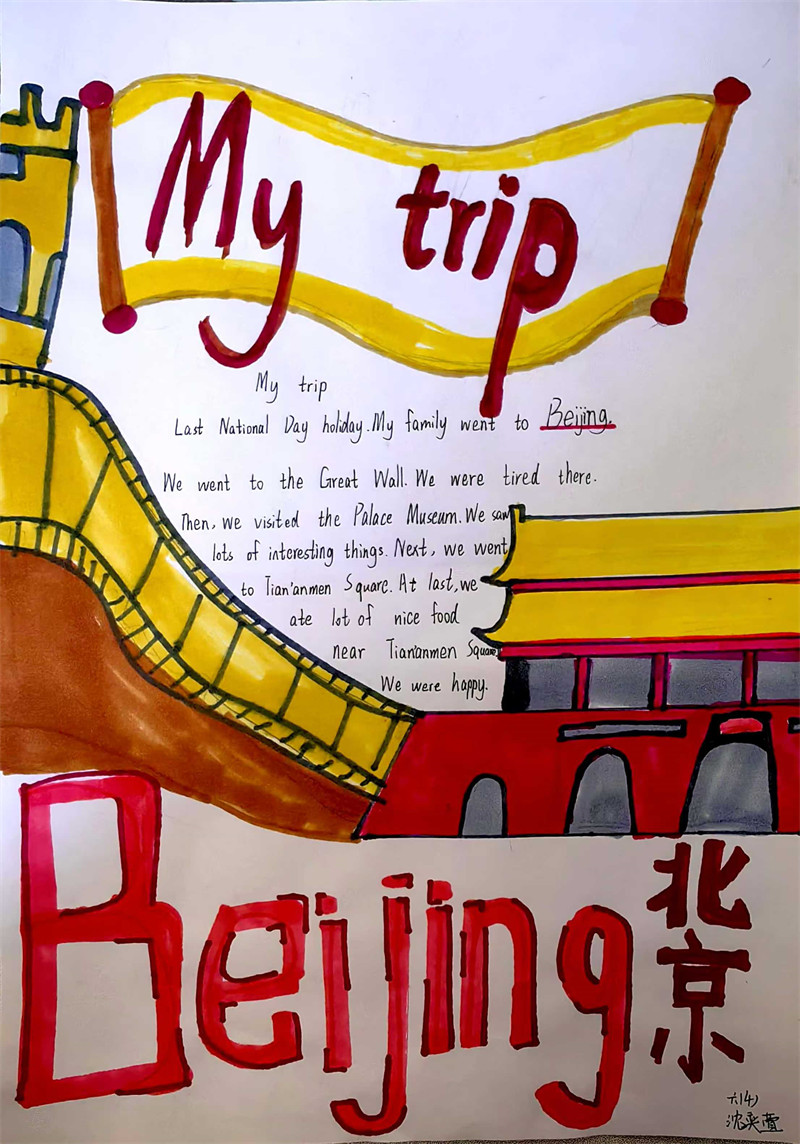 My trip
My trip
Last National Day holiday. My family went to Beijing.
We went to the Great Wall. We were tired there.
Then, we visited the Palace Museum. We saw
lots of interesting things. Next, we went
to Tian'anmen Square. At last, we
ate lot of nice food
near Tian'anmen Square
We were happy.
Beijing
北京
六(4)
沈奕萱